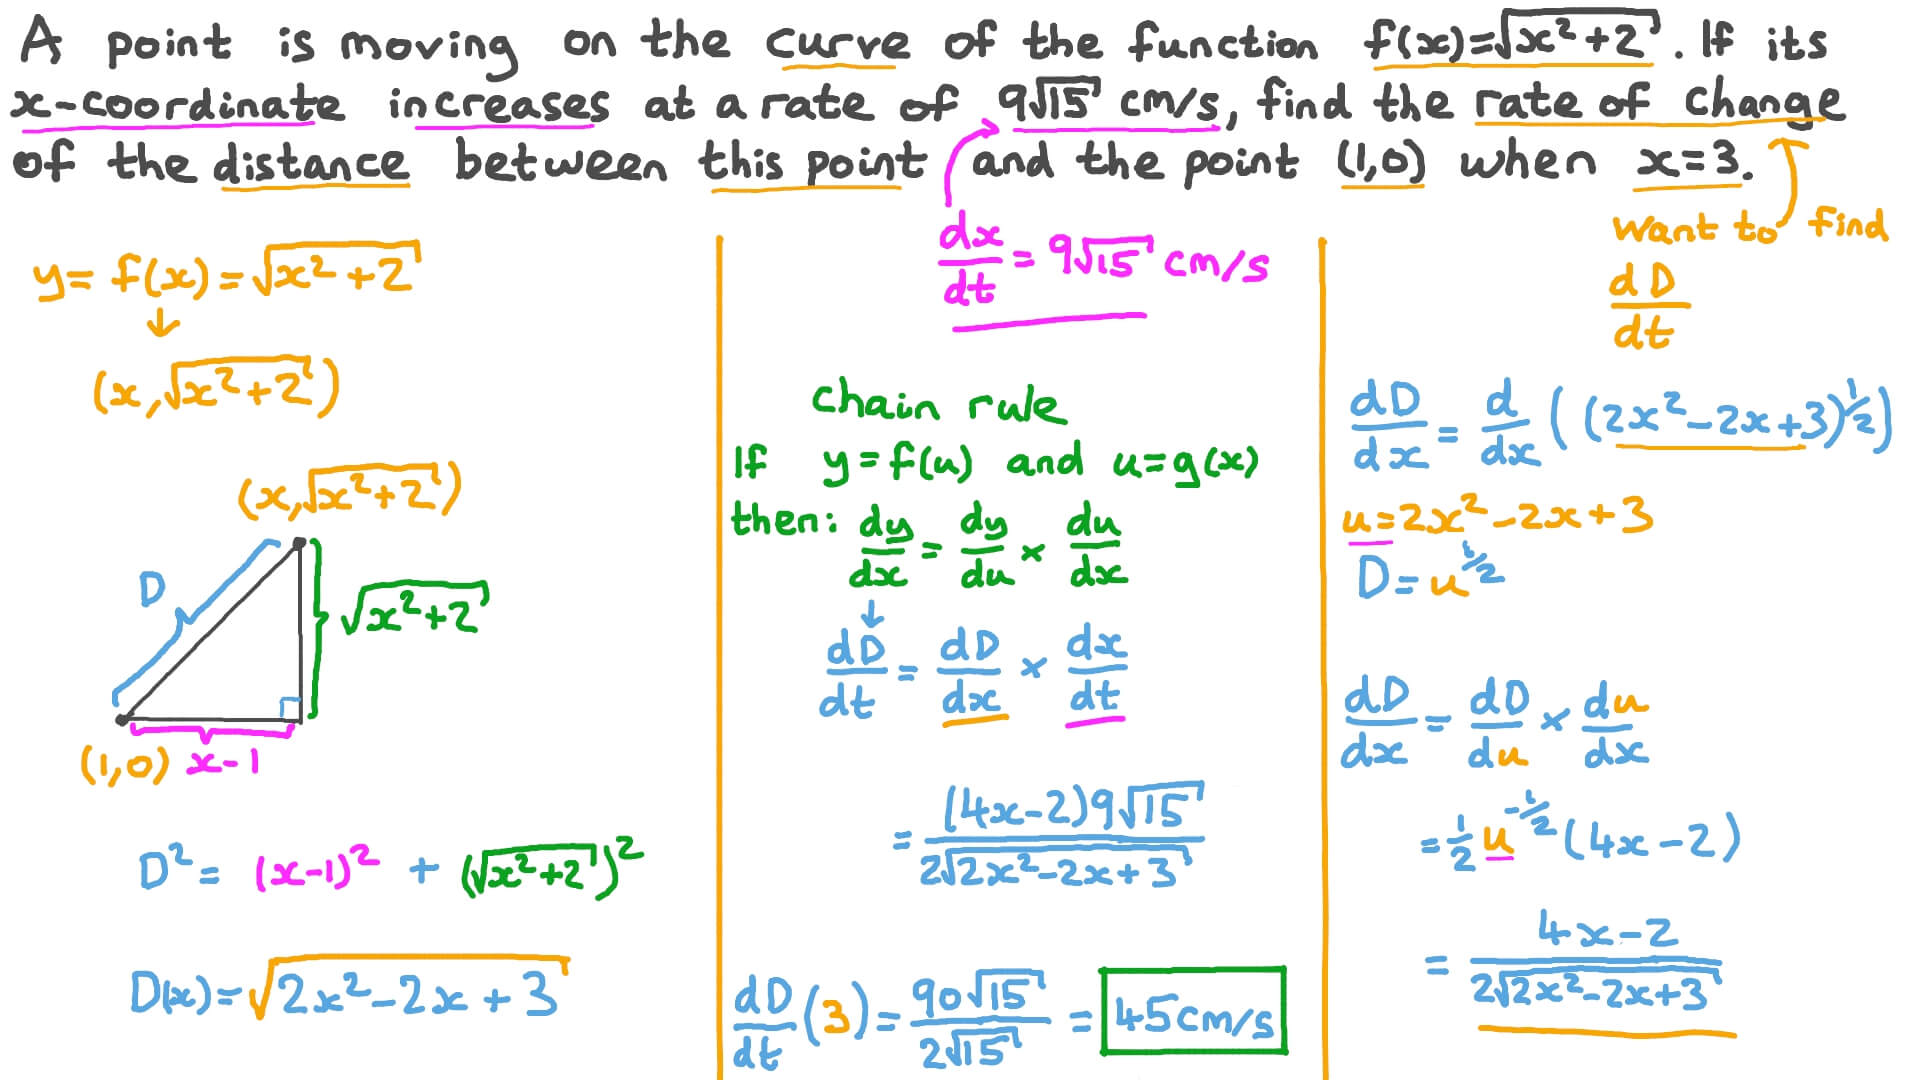 A point is moving on the curve of the function f(x)=√(x²+2). If its
x-coordinate increases at a rate of 9√15 cm/s, find the rate of change
of the distance between this point and the point (1,0) when x=3.
y= f(x)=√(x²+2)
↓
(x,√(x²+2))
(x,√(x²+2))
D
√(x²+2)
(1,0) x-1
D² = (x-1)² + (√(x²+2))²
D(x)=√(2x²-2x+3)
dx/dt = 9√15 cm/s
chain rule
If y=f(u) and u=g(x)
then: dy/dx = dy/du × du/dx
↓
dD/dt = dD/dx × dx/dt
= (4x-2)9√15 / 2√(2x²-2x+3)
dD/dt (3) = 90√15 / 2√15 = 45cm/s
want to find
dD/dt
dD/dx = d/dx ((2x²-2x+3)^1/2)
u=2x²-2x+3
D=u^1/2
dD/dx = dD/du × du/dx
= 1/2 u^-1/2 (4x-2)
= 4x-2 / 2√(2x²-2x+3)